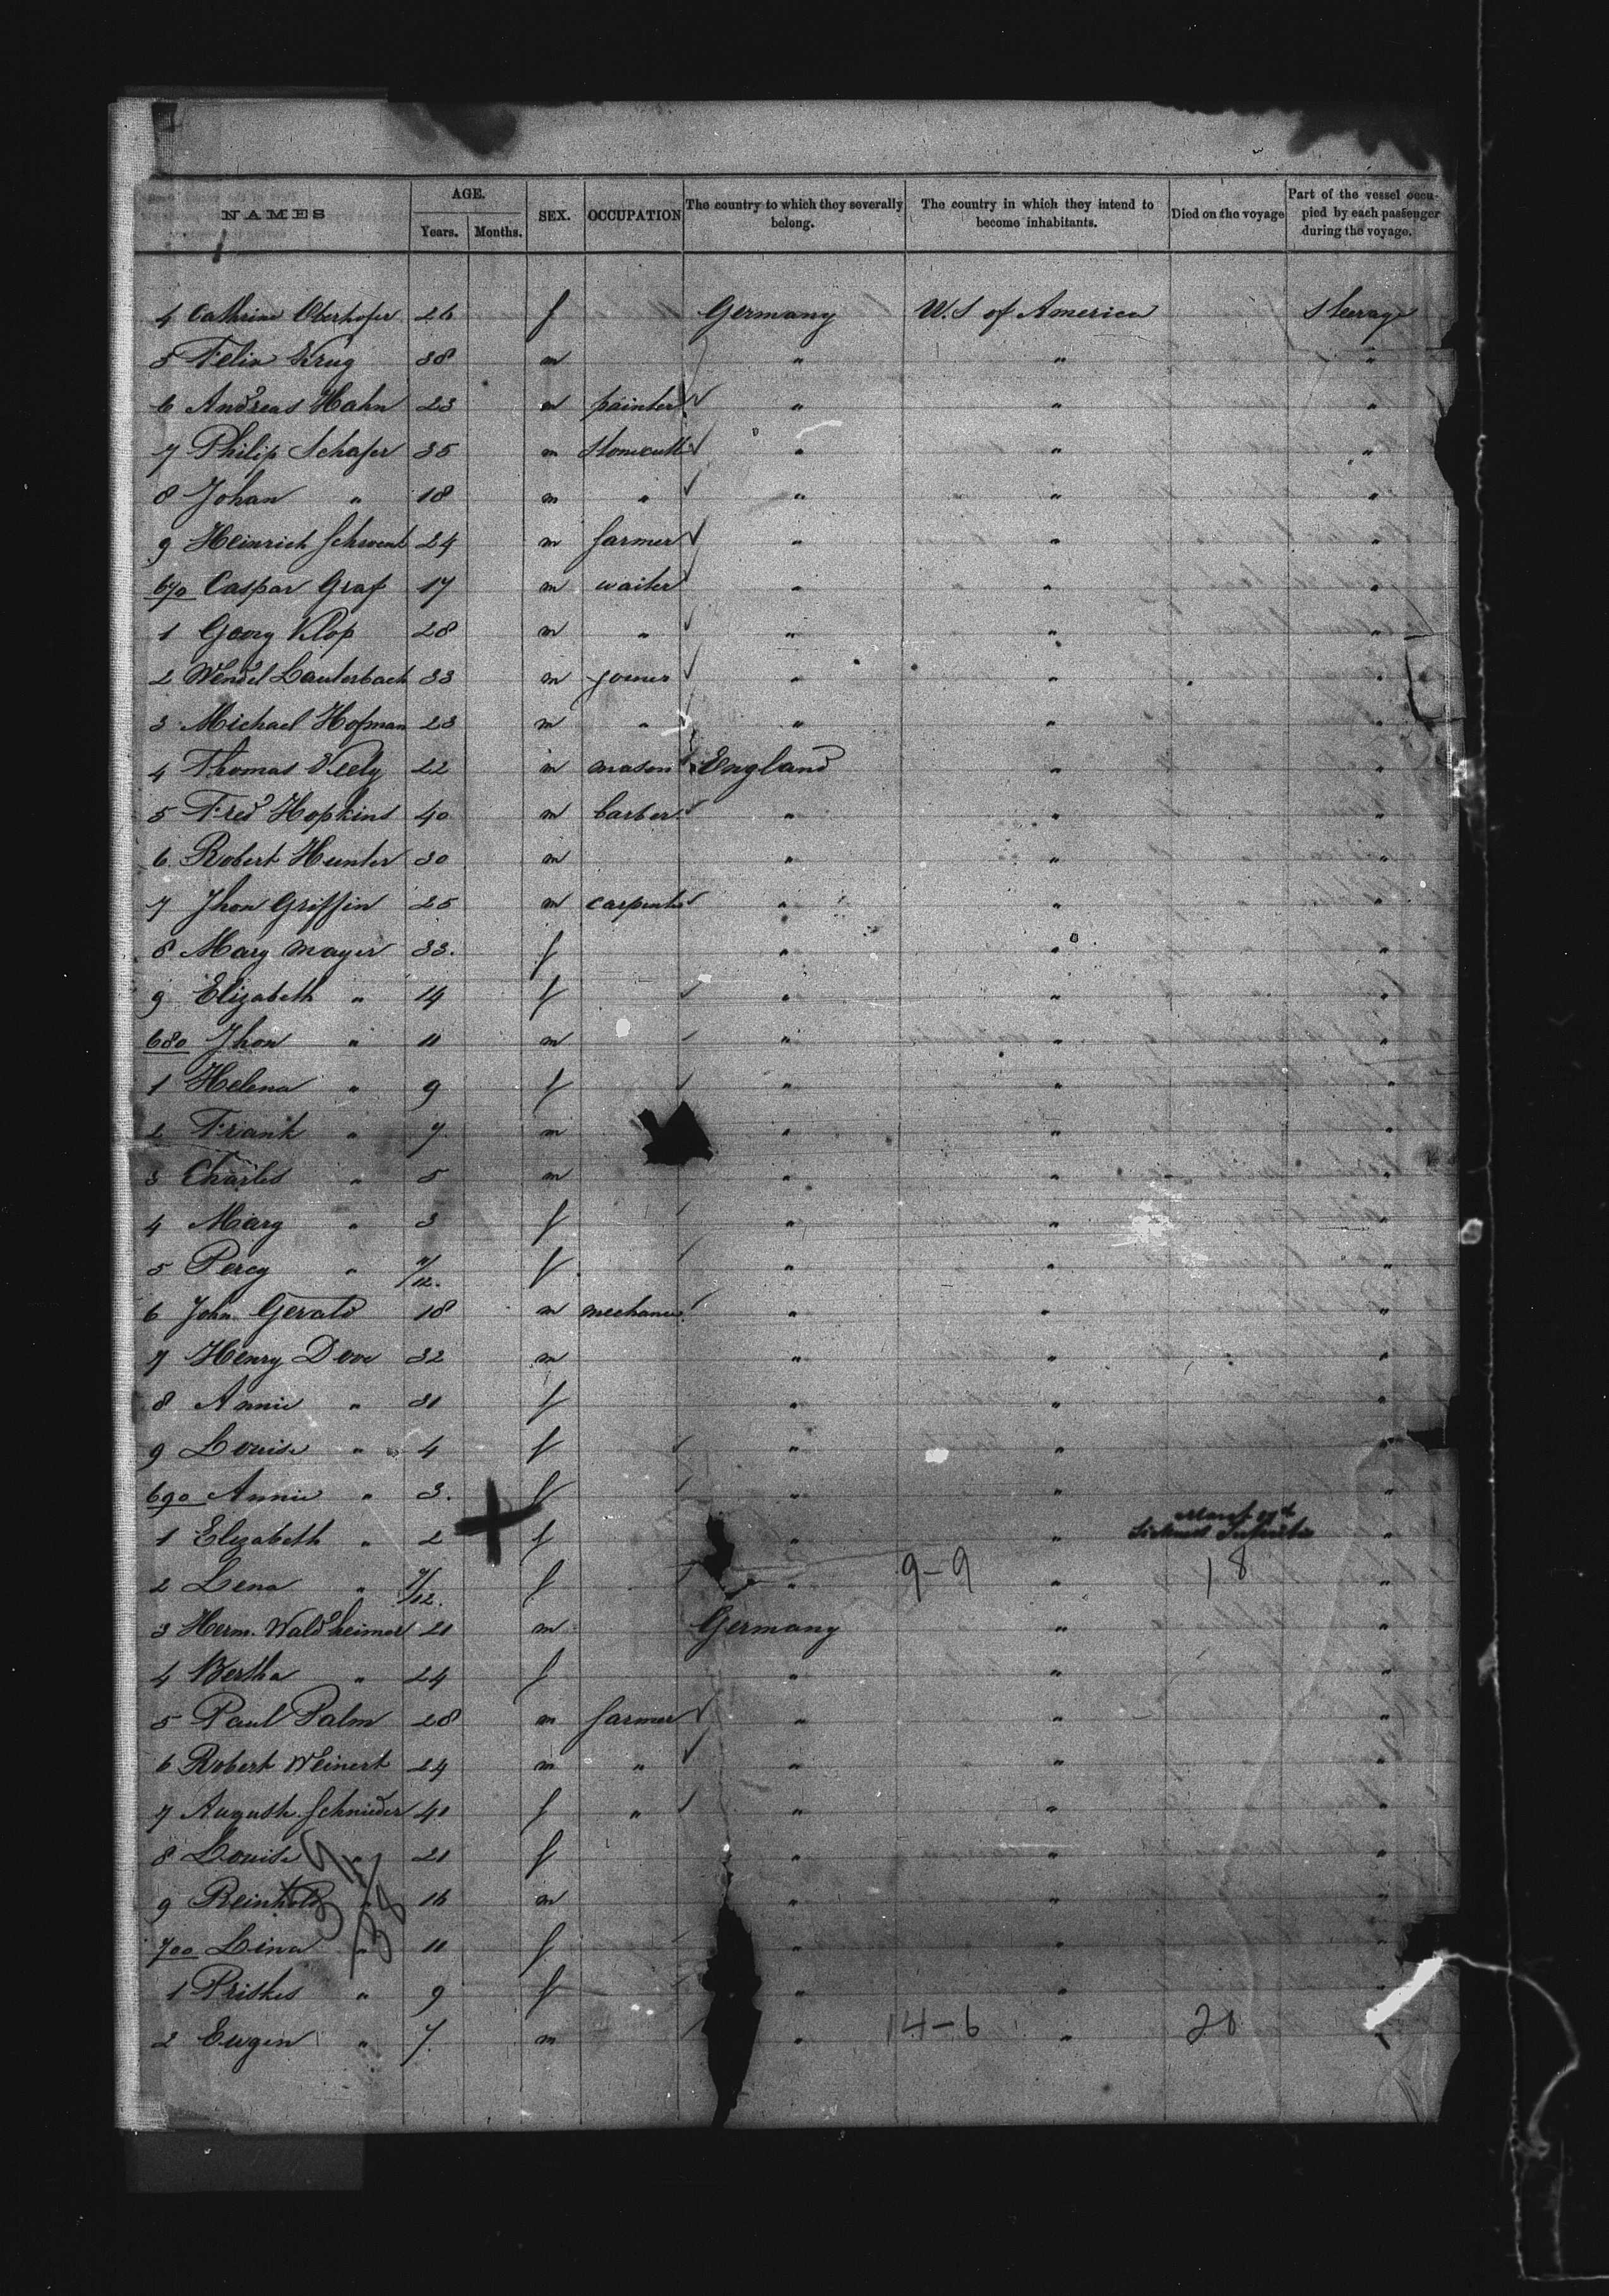 NAMES AGE. Years. Months. SEX. OCCUPATION The country to which they severally belong. The country in which they intend to become inhabitants. Died on the voyage Part of the vessel occupied by each passenger during the voyage.
4 Cathrine Oberhofer 26 f Germany U.S of America Steerage
5 Felix Krug 38 m " " "
6 Andreas Hahn 23 m painter " " "
7 Philip Schafer 35 m Stonecutt " " "
8 Johan " 18 m " " " "
9 Heinrich Schwent 24 m farmer " " "
670 Caspar Graf 17 m waiter " " "
1 Georg Klop 28 m " " " "
2 Wendel Lauterbach 33 m joiner " " "
3 Michael Hofman 23 m " " " "
4 Thomas Neely 22 m mason England " "
5 Fred Hopkins 40 m barber " " "
6 Robert Hunter 30 m " " "
7 Jhon Griffin 25 m carpenter " " "
8 Mary Mayer 33. f " " "
9 Elizabeth " 14 f " " "
680 Jhon " 11 m " " "
1 Helena " 9 f " " "
2 Frank " 7 m " " "
3 Charles " 5 m " " "
4 Mary " 3 f " " "
5 Percy " 11/12. f " " "
6 John Gerald 18 m mechanic " " "
7 Henry Dove 32 m " " "
8 Annie " 31 f " " "
9 Louise " 4 f " " "
690 Annie " 3. f " " "
1 Elizabeth " 2 + f " " "
2 Lena " 7/12. f " 9-9 " 18 "
3 Herm. Waldheimer 21 m Germany " "
4 Bertha " 24 f " " "
5 Paul Palm 28 m farmer " " "
6 Robert Weinert 24 m " " " "
7 Auguste Schnieder 41 f " " " "
8 Louise " 21 f " " "
9 Reinhold " 16 m " " "
700 Lina " 11 f " " "
1 Priskes " 9 f " " "
2 Eugen " 7. m " 14-6 " 20 "